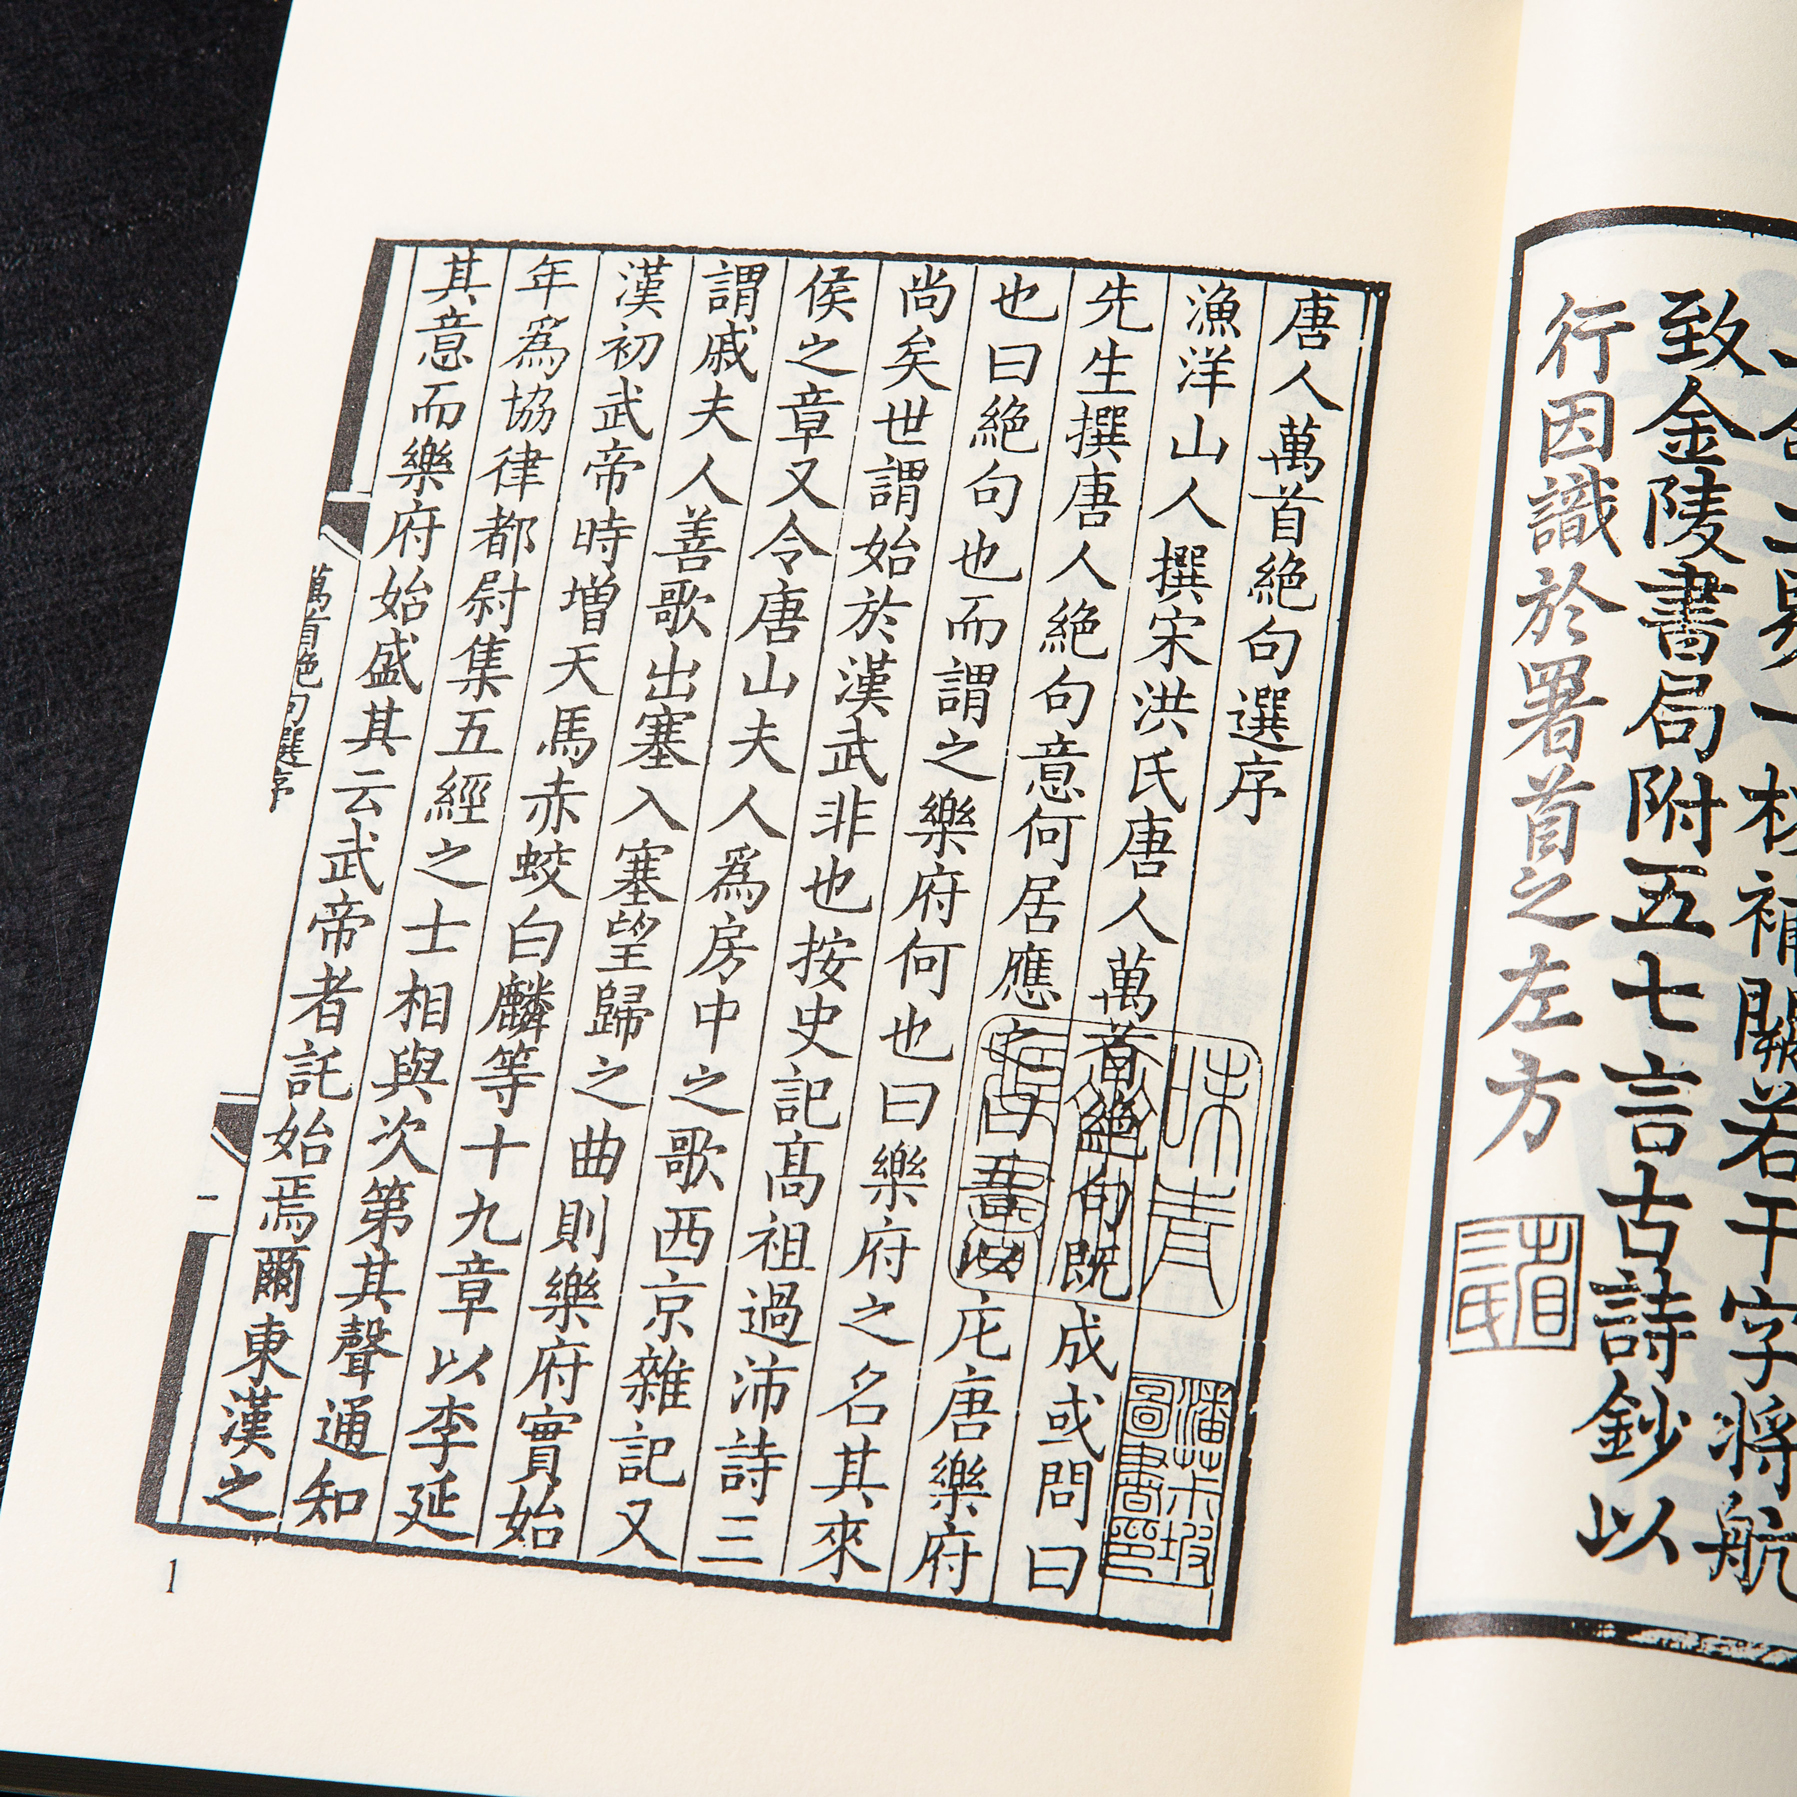 一校補闕若干字將航
致金陵書局附五七言古詩鈔以
行因識於署首之左方
唐人萬首絶句選序
漁洋山人撰宋洪氏唐人萬首絶句既成或問曰
先生撰唐人絶句意何居應之曰吾以庀唐樂府
也曰絶句也而謂之樂府何也曰樂府之名其來
尚矣世謂始於漢武非也按史記髙祖過沛詩三
侯之章又令唐山夫人爲房中之歌西京雜記又
謂戚夫人善歌出塞入塞望歸之曲則樂府實始
漢初武帝時増天馬赤蛟白麟等十九章以李延
年爲協律都尉集五經之士相與次第其聲通知
其意而樂府始盛其云武帝者託始焉爾東漢之
潘茮坡
圖書印
萬首絶句選序
一
1